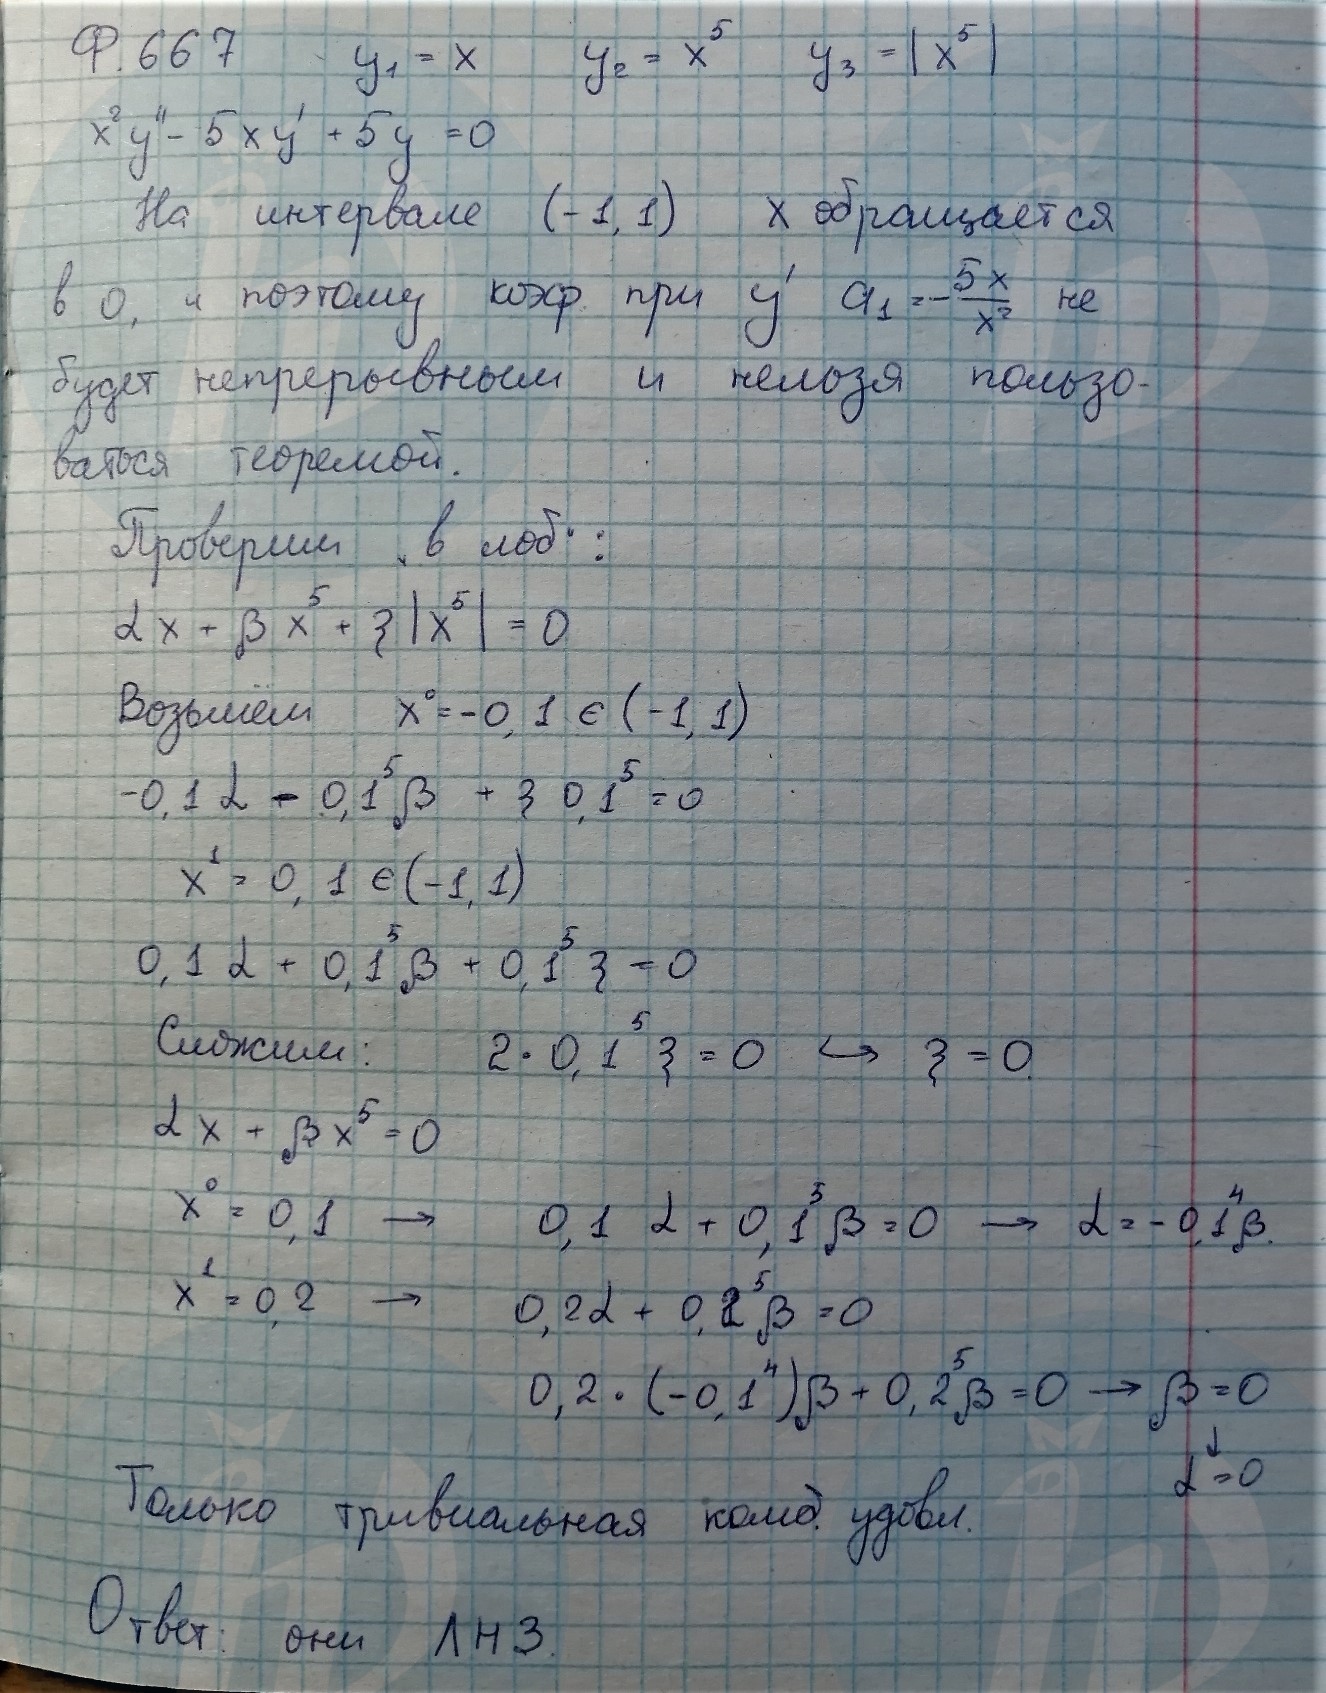 Ф.667 y₁ = x y₂ = x⁵ y₃ = |x⁵|
x²y'' - 5xy' + 5y = 0
На интервале (-1,1) x обращается
в 0, и поэтому коэф. при y' a₁ = -5x/x² не
будет непрерывным и нельзя пользо-
ваться теоремой.
Проверим "в лоб":
αx + βx⁵ + ξ|x⁵| = 0
Возьмём x⁰ = -0,1 ∈ (-1,1)
-0,1α - 0,1⁵β + ξ 0,1⁵ = 0
x¹ = 0,1 ∈ (-1,1)
0,1α + 0,1⁵β + 0,1⁵ξ = 0
Сложим: 2·0,1⁵ξ = 0 ↪ ξ = 0
αx + βx⁵ = 0
x⁰ = 0,1 → 0,1α + 0,1⁵β = 0 → α = -0,1⁴β.
x¹ = 0,2 → 0,2α + 0,2⁵β = 0
0,2·(-0,1⁴)β + 0,2⁵β = 0 → β = 0
↓
α = 0
Только тривиальная комб. удовл.
Ответ: они ЛНЗ.